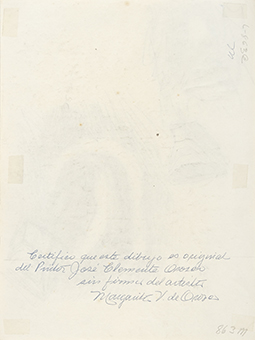 Certifico que este dibujo es original
del Pintor José Clemente Orozco
sin firma del artista
Margarita V. de Orozco
863 M